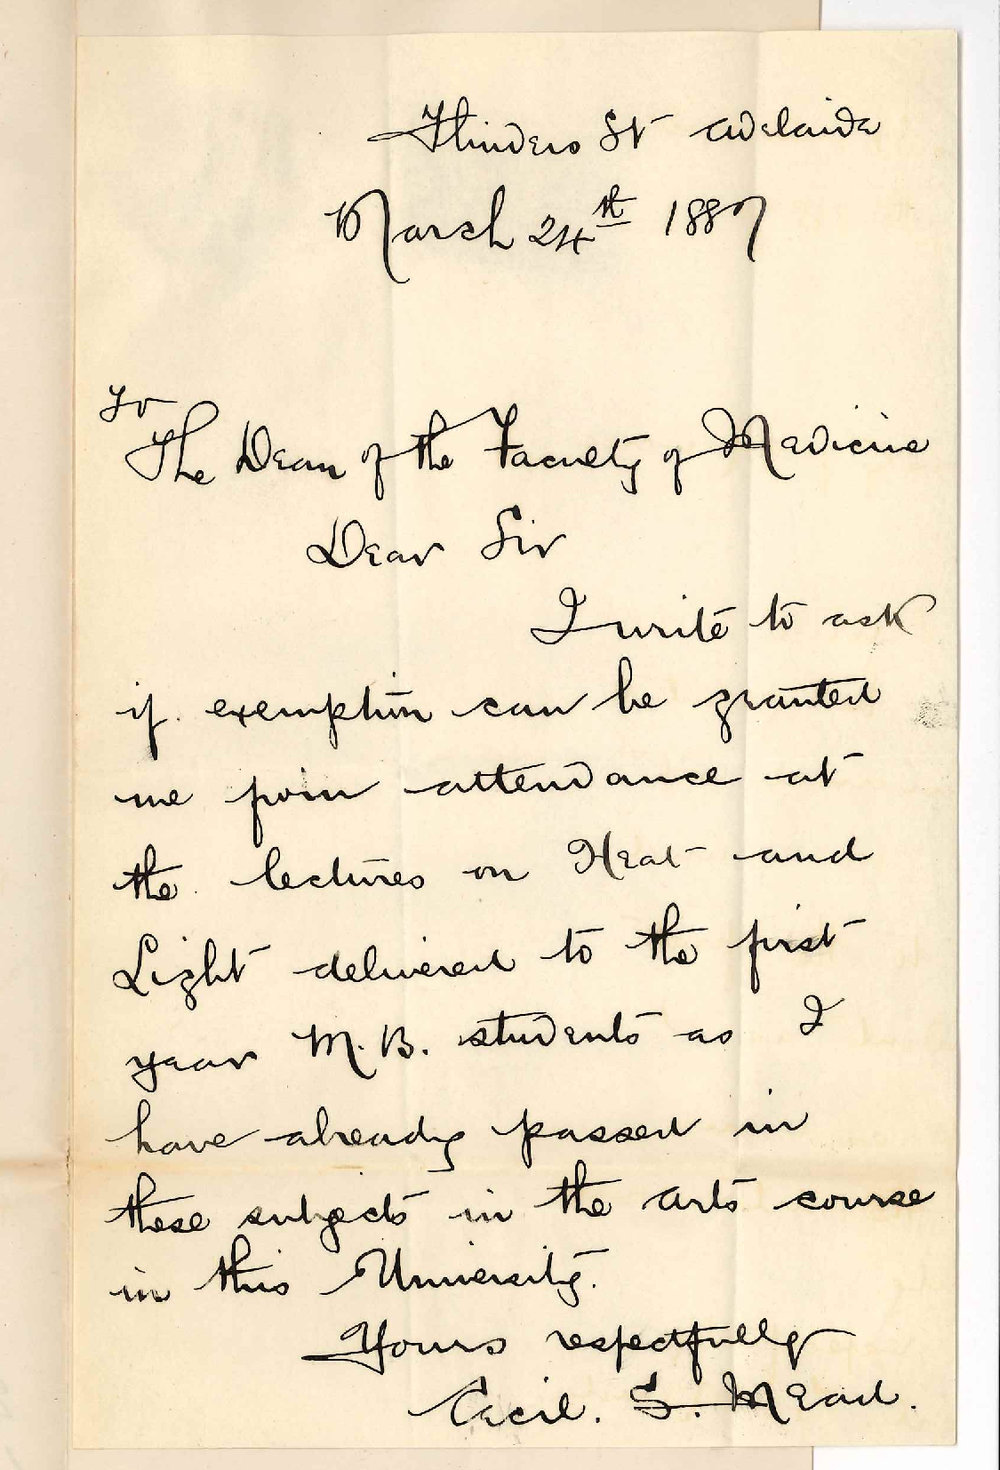 Flinders St Adelaide
March 24th 1887
To
The Dean of the Faculty of Medicine
Dear Sir
I write to ask
if exemption can be granted
me from attendance at
the lectures on Heat and
Light delivered to the first
year M.B. students as I
have already passed in
these subjects in the arts course
in this University.
Yours respectfully
Cecil. S. Mead.